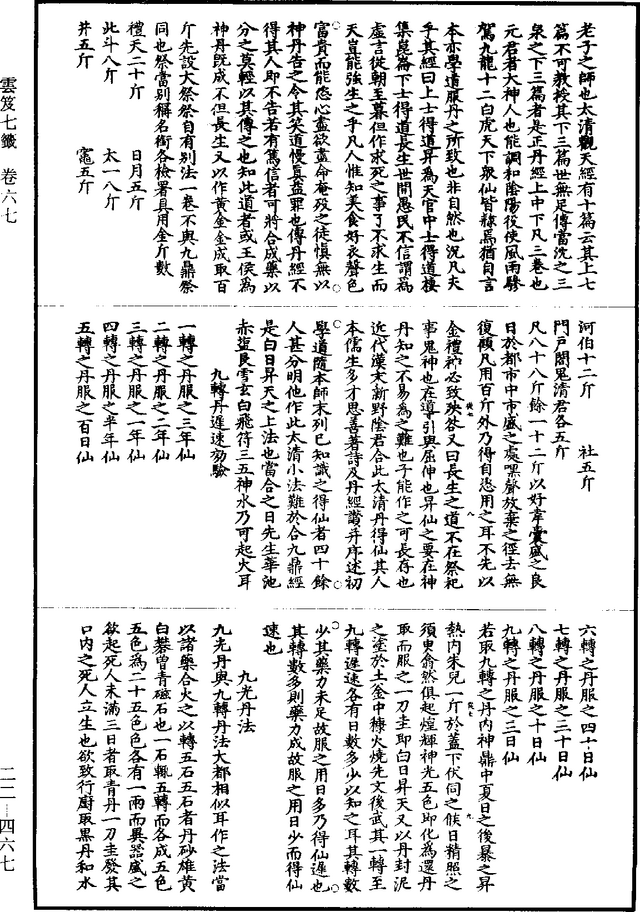 老子之師也太清觀天經有十篇云其上七
篇不可教授其下三篇世無足傳當沈之三
泉之下三篇者是正丹經上中下凡三卷也
元君者大神人也能調和陰陽役使風雨驂
駕九龍十二白虎天下眾仙皆隸焉猶自言
本亦學道服丹之所致也非自然也況凡夫
乎其經曰上士得道昇為天官中士得道棲
集崑崙下士得道長生世間愚民不信謂為
虛言從朝至暮但作求死之事了不求生而
天豈能強生之乎凡人惟知美食好衣聲色
富貴而能恣心盡欲盡命奄歿之徒慎無以
神丹告之令其笑道慢真益罪也傳丹經不
得其人即不告若有篤信者可將合成藥以
分之莫輕以其傳之也知此道者或王侯為
神丹既成不但長生又以作黃金金成取百
斤先設大祭祭自有別法一卷不與九鼎祭
同也祭當別稱名銜各檢署具用金斤數
禮天二十斤　日月五斤
北斗八斤　太一八斤
井五斤　竈五斤
河伯十二斤　社五斤
門戶閭鬼清君各五斤
凡八十八斤餘一十二斤以好韋囊盛之良
日於都市中市盛之處嘿聲放棄之徑去無
復顧凡用百斤外乃得自恣用之耳不先以
金禮神必致殃咎又曰長生之道不在祭祀
事鬼神也在導引與屈伸也昇仙之要在神
丹知之不易為之難也子能作之可長存也
近代漢末新野陰君合此太清丹得仙其人
本儒生多才思善著詩及丹經讚并序述初
學道隨本師末列已知識之得仙者四十餘
人甚分明他作此太清小法難於合九鼎經
是白日昇天之上法也當合之日先生華池
赤鹽艮雪玄白飛符三五神水乃可起火耳
九轉丹遲速効驗
一轉之丹服之三年仙
二轉之丹服之二年仙
三轉之丹服之一年仙
四轉之丹服之半年仙
五轉之丹服之百日仙
六轉之丹服之四十日仙
七轉之丹服之三十日仙
八轉之丹服之十日仙
九轉之丹服之三日仙
若取九轉之丹内神鼎中夏日之後暴之昇
熱内朱兒一斤於蓋下伏伺之候日精照之
須臾翕然俱起煌輝神光五色即化為還丹
取而服之一刀圭即白日昇天又以丹封泥
之塗於土釜中糠火燒先文後武其一轉至
九轉遲速各有日數多少以知之耳其轉數
少其藥力未足故服之用日多乃得仙遲也
其轉數多則藥力成故服之用日少而得仙
速也
九光丹法
九光丹與九轉丹法大都相似耳作之法當
以諸藥合火之以轉五石五石者丹砂雄黃
白礬曾青磁石也一石輒五轉而各成五色
五色為二十五色色各有一兩而異器盛之
欲起死人未滿三日者取青丹一刀圭發其
口内之死人立生也欲致行廚取黑丹和水
雲笈七籤　卷六七
二二—四六七